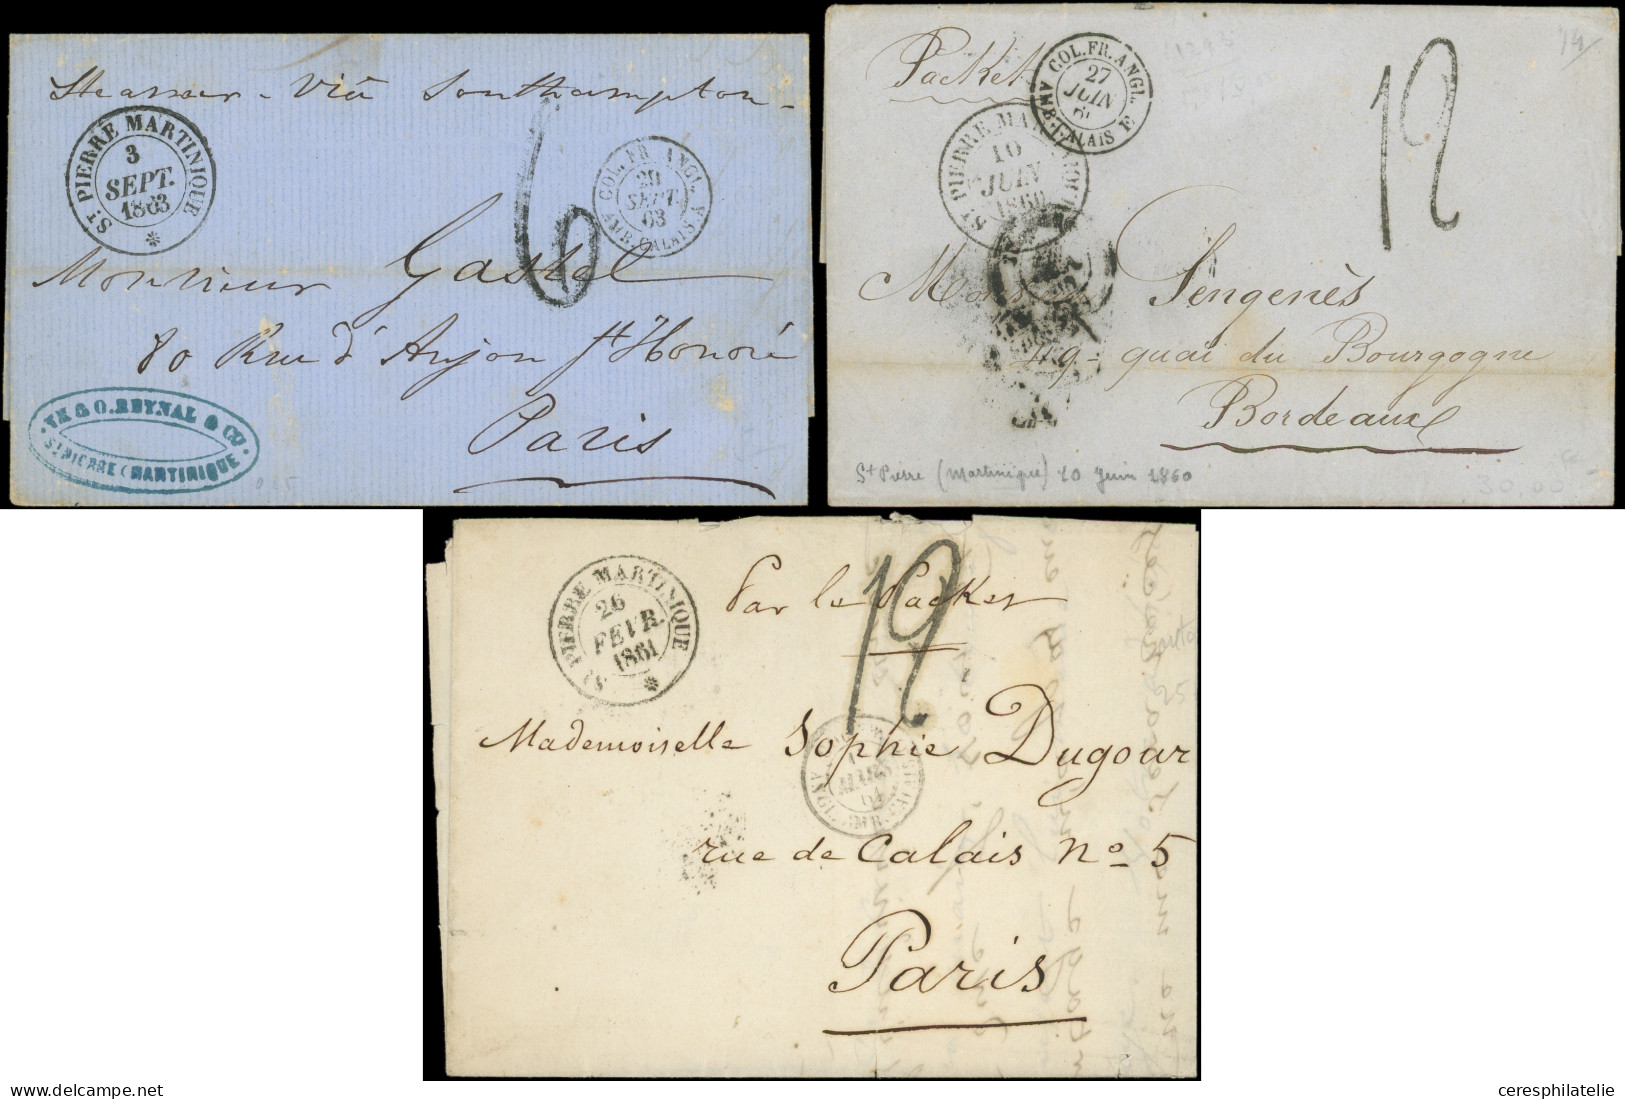 Steamer - Viâ Southampton -
ST PIERRE MARTINIQUE
3
SEPT.
1863
6
COL. FR. ANGL.
29
SEPT.
63
AMB. CALAIS
Monsieur Gastel
80 Rue d'Anjou St Honoré
Paris
& O. REYNAL & CO
ST PIERRE (MARTINIQUE)
Packet
COL. FR. ANGL.
27
JUIN
AMB. CALAIS E
12
ST PIERRE MARTINIQUE
10
JUIN
1860
Monsieur Sengenès
quai du Bourgogne
Bordeaux
St Pierre (Martinique) 10 juin 1860
30,00
ST PIERRE MARTINIQUE
26
FEVR.
1861
12
Par le Packet
Mademoiselle Sophie Dugour
MARS
61
rue de Calais no 5
Paris
delcampe.net
ceresphilatelie